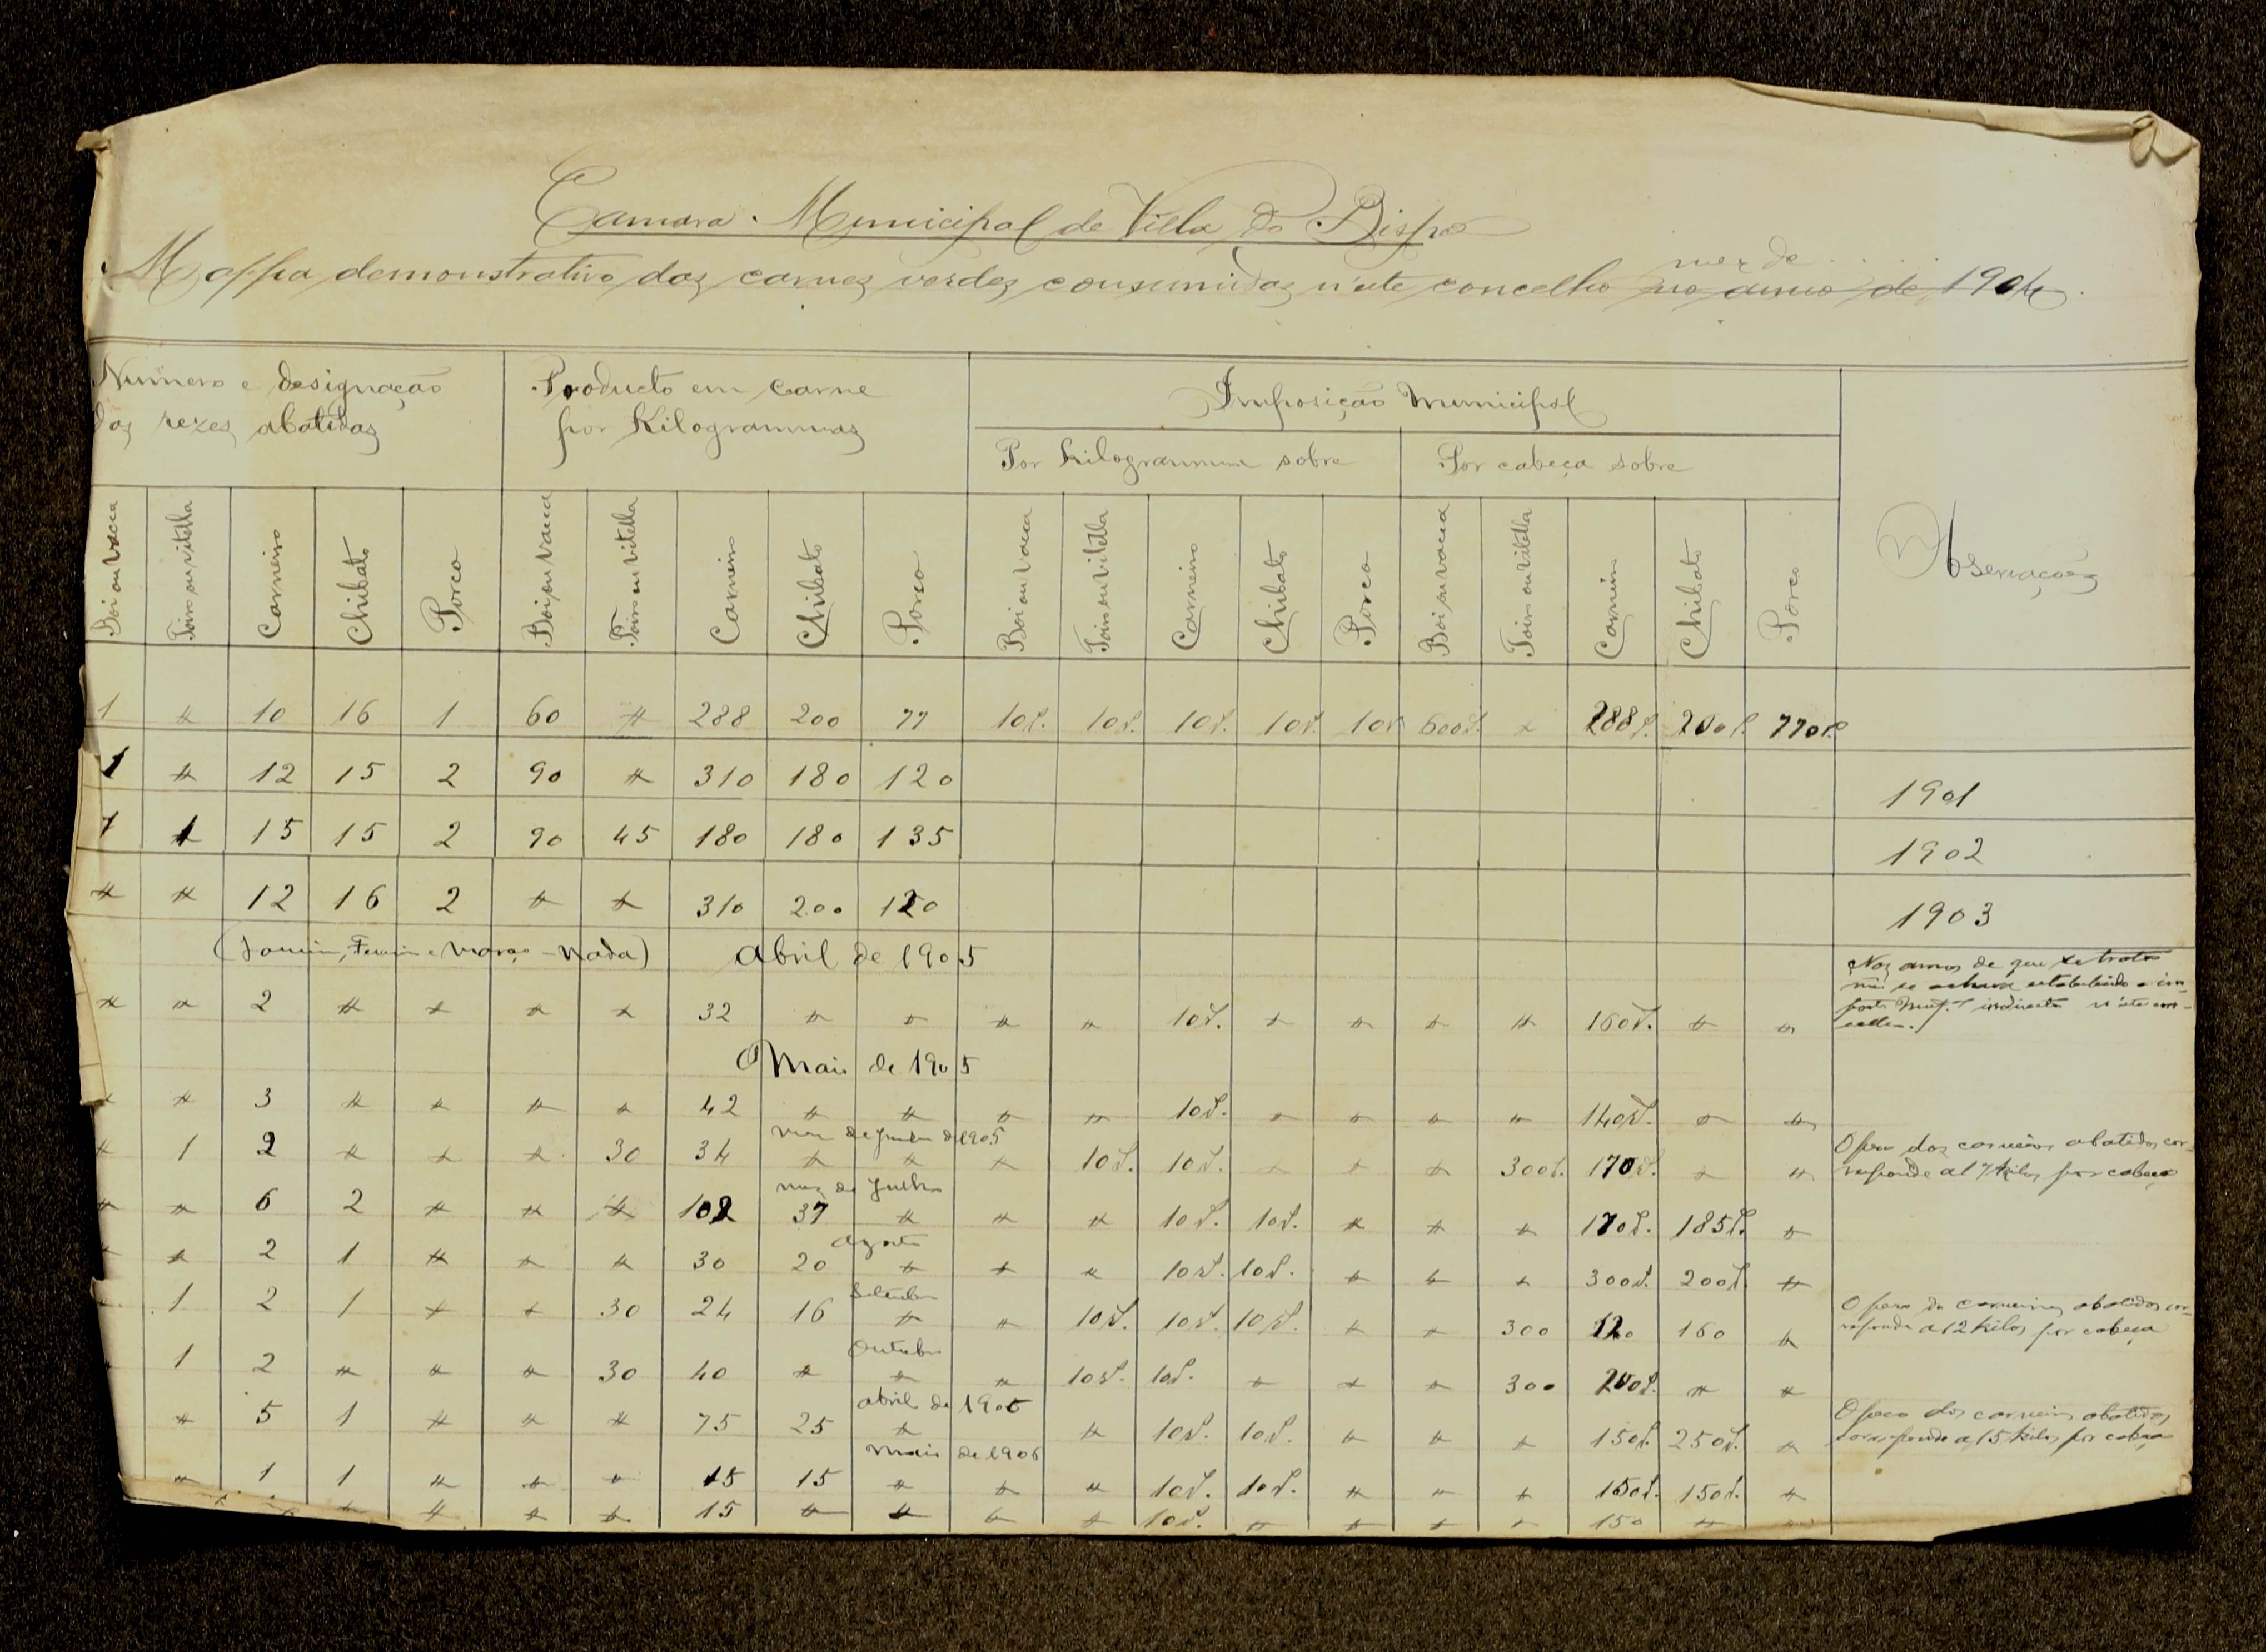 Camara Municipal de Villa do Bispo
mez de . . . .
Mappa demonstrativo das carnes verdes consumidas n'este concelho no anno de 1904.
Numero e designação
das rezes abatidas
Producto em carne
por Kilogrammas
Imposição Municipal
Por kilogramma sobre
Por cabeça sobre
Observações
Boi ou vacca
Toiro ou vitella
Carneiro
Chibato
Porco
Boi ou vacca
Toiro ou vitella
Carneiro
Chibato
Porco
Boi ou vacca
Toiro ou vitella
Carneiro
Chibato
Porco
Boi ou vacca
Toiro ou vitella
Carneiro
Chibato
Porco
1 " 10 16 1 60 " 288 200 77 10r. 10r. 10r. 10r. 10r 600r. " 288r. 200r. 770r.
1 " 12 15 2 90 " 310 180 120 1901
1 1 15 15 2 90 45 180 180 135 1902
" " 12 16 2 " " 310 200 120 1903
(Janeiro, Fevereiro e Março - Nada) Abril de 1905
Nos annos de que se trata
não se achava estabelecido o im-
posto Mun.al indirecto n'este con-
celho.
" " 2 " " " " 32 " " " " 10r. " " " " 160r. " "
Maio de 1905
" " 3 " " " " 42 " " " " 10r. " " " " 140r. " "
mez de Junho de 1905
" 1 2 " " " 30 34 " " " 10r. 10r. " " " 300r. 170r. " "
O peso dos carneiros abatidos cor-
responde a 17 kilos por cabeça
mez de Julho
" " 6 2 " " " 102 37 " " " 10r. 10r. " " " 170r. 185r. "
Agosto
" " 2 1 " " " 30 20 " " " 10r. 10r. " " " 300r. 200r. "
Setembro
" 1 2 1 " " 30 24 16 " " 10r. 10r. 10r. " " 300 120 160 "
O peso de carneiros abatidos cor-
responde a 12 kilos por cabeça
Outubro
1 2 " " " 30 40 " " " 10r. 10r. " " " 300 200r. " "
abril de 1906
" 5 1 " " " 75 25 " " 10r. 10r. " " " 150r. 250r. "
O peso dos carneiros abatidos
corresponde a 15 kilos por cabeça
Maio de 1906
" 1 1 " " " 15 15 " " " 10r. 10r. " " " 150r. 150r. "
" " " " 15 " " " " 10r. " " " " 150 " "